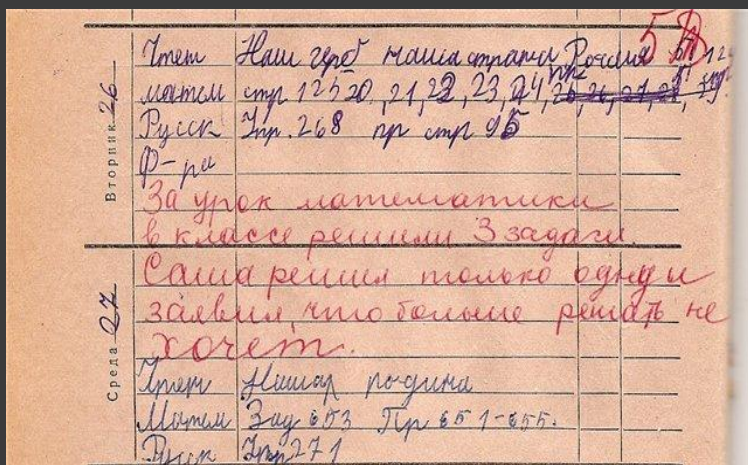 Вторник 26
Чтен Наш герб наша страна Россия 5
матем стр 125 20, 21, 22, 23, 24,
Русск Упр. 268 пр стр 95
Ф-ра
За урок математики
в классе решили 3 задачи.
Среда 27
Саша решил только одну и
заявил, что больше решать не
хочет.
Чтен Наша родина
Матем Зад 653 Пр 651-655.
Русск Упр 271